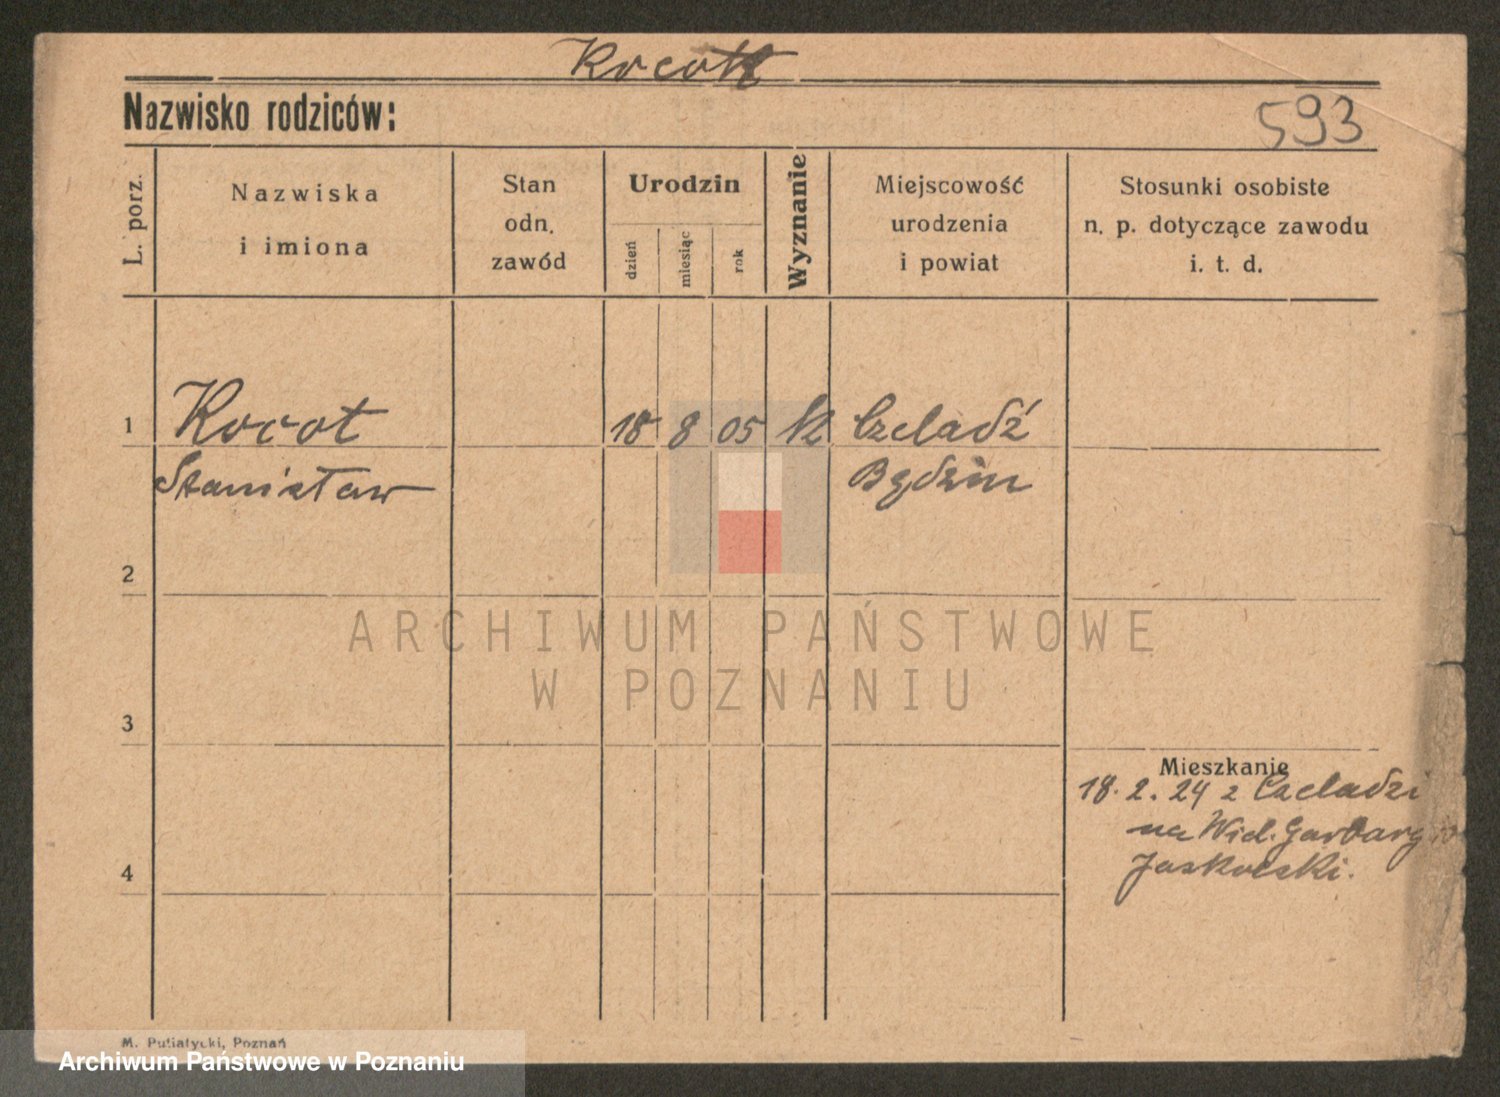 Kocot
Nazwisko rodziców:
593
L. porz.
Nazwiska
i imiona
Stan
odn.
zawód
Urodzin
dzień
miesiąc
rok
Wyznanie
Miejscowość
urodzenia
i powiat
Stosunki osobiste
n. p. dotyczące zawodu
i. t. d.
1 Kocot 18 8 05 k Czeladź
Stanisław Będzin
2
ARCHIWUM PAŃSTWOWE
W POZNANIU
3
Mieszkanie
18. 2. 24 z Czeladzi
na Wiel. Garbary
4
M. Putiatycki, Poznań
Archiwum Państwowe w Poznaniu